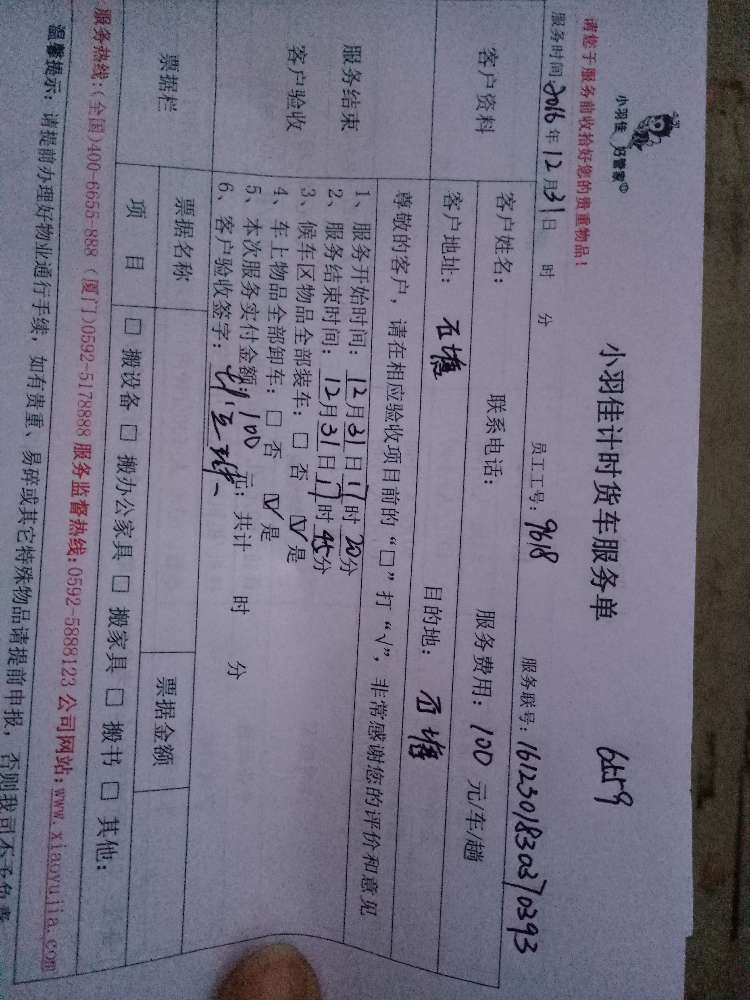 小羽佳 好管家
请您于服务前收拾好您的贵重物品！
小羽佳计时货车服务单
服务时间：2016年12月31日 时 分 员工工号：9618 服务联号：1612301830370393
客户资料
客户姓名： 联系电话： 服务费用：100元/车/趟
客户地址： 目的地：
尊敬的客户，请在相应验收项目前的“□”打“√”，非常感谢您的评价和意见
服务结束
客户验收
1、服务开始时间：12月31日17时20分
2、服务结束时间：12月31日17时45分
3、候车区物品全部装车：□ 否 ☑ 是
4、车上物品全部卸车：□ 否 ☑ 是
5、本次服务实付金额：100元；共计 时 分
6、客户验收签字：
票据栏 票据名称 票据金额
项 目 □ 搬设备 □ 搬办公家具 □ 搬家具 □ 搬书 □ 其他：
服务热线：(全国)400-6655-888 (厦门)0592-5178888 服务监督热线：0592-5888123 公司网站：www.xiaoyujia.com
温馨提示：请提前办理好物业通行手续，如有贵重、易碎或其它特殊物品请提前申报，否则我司不予负责